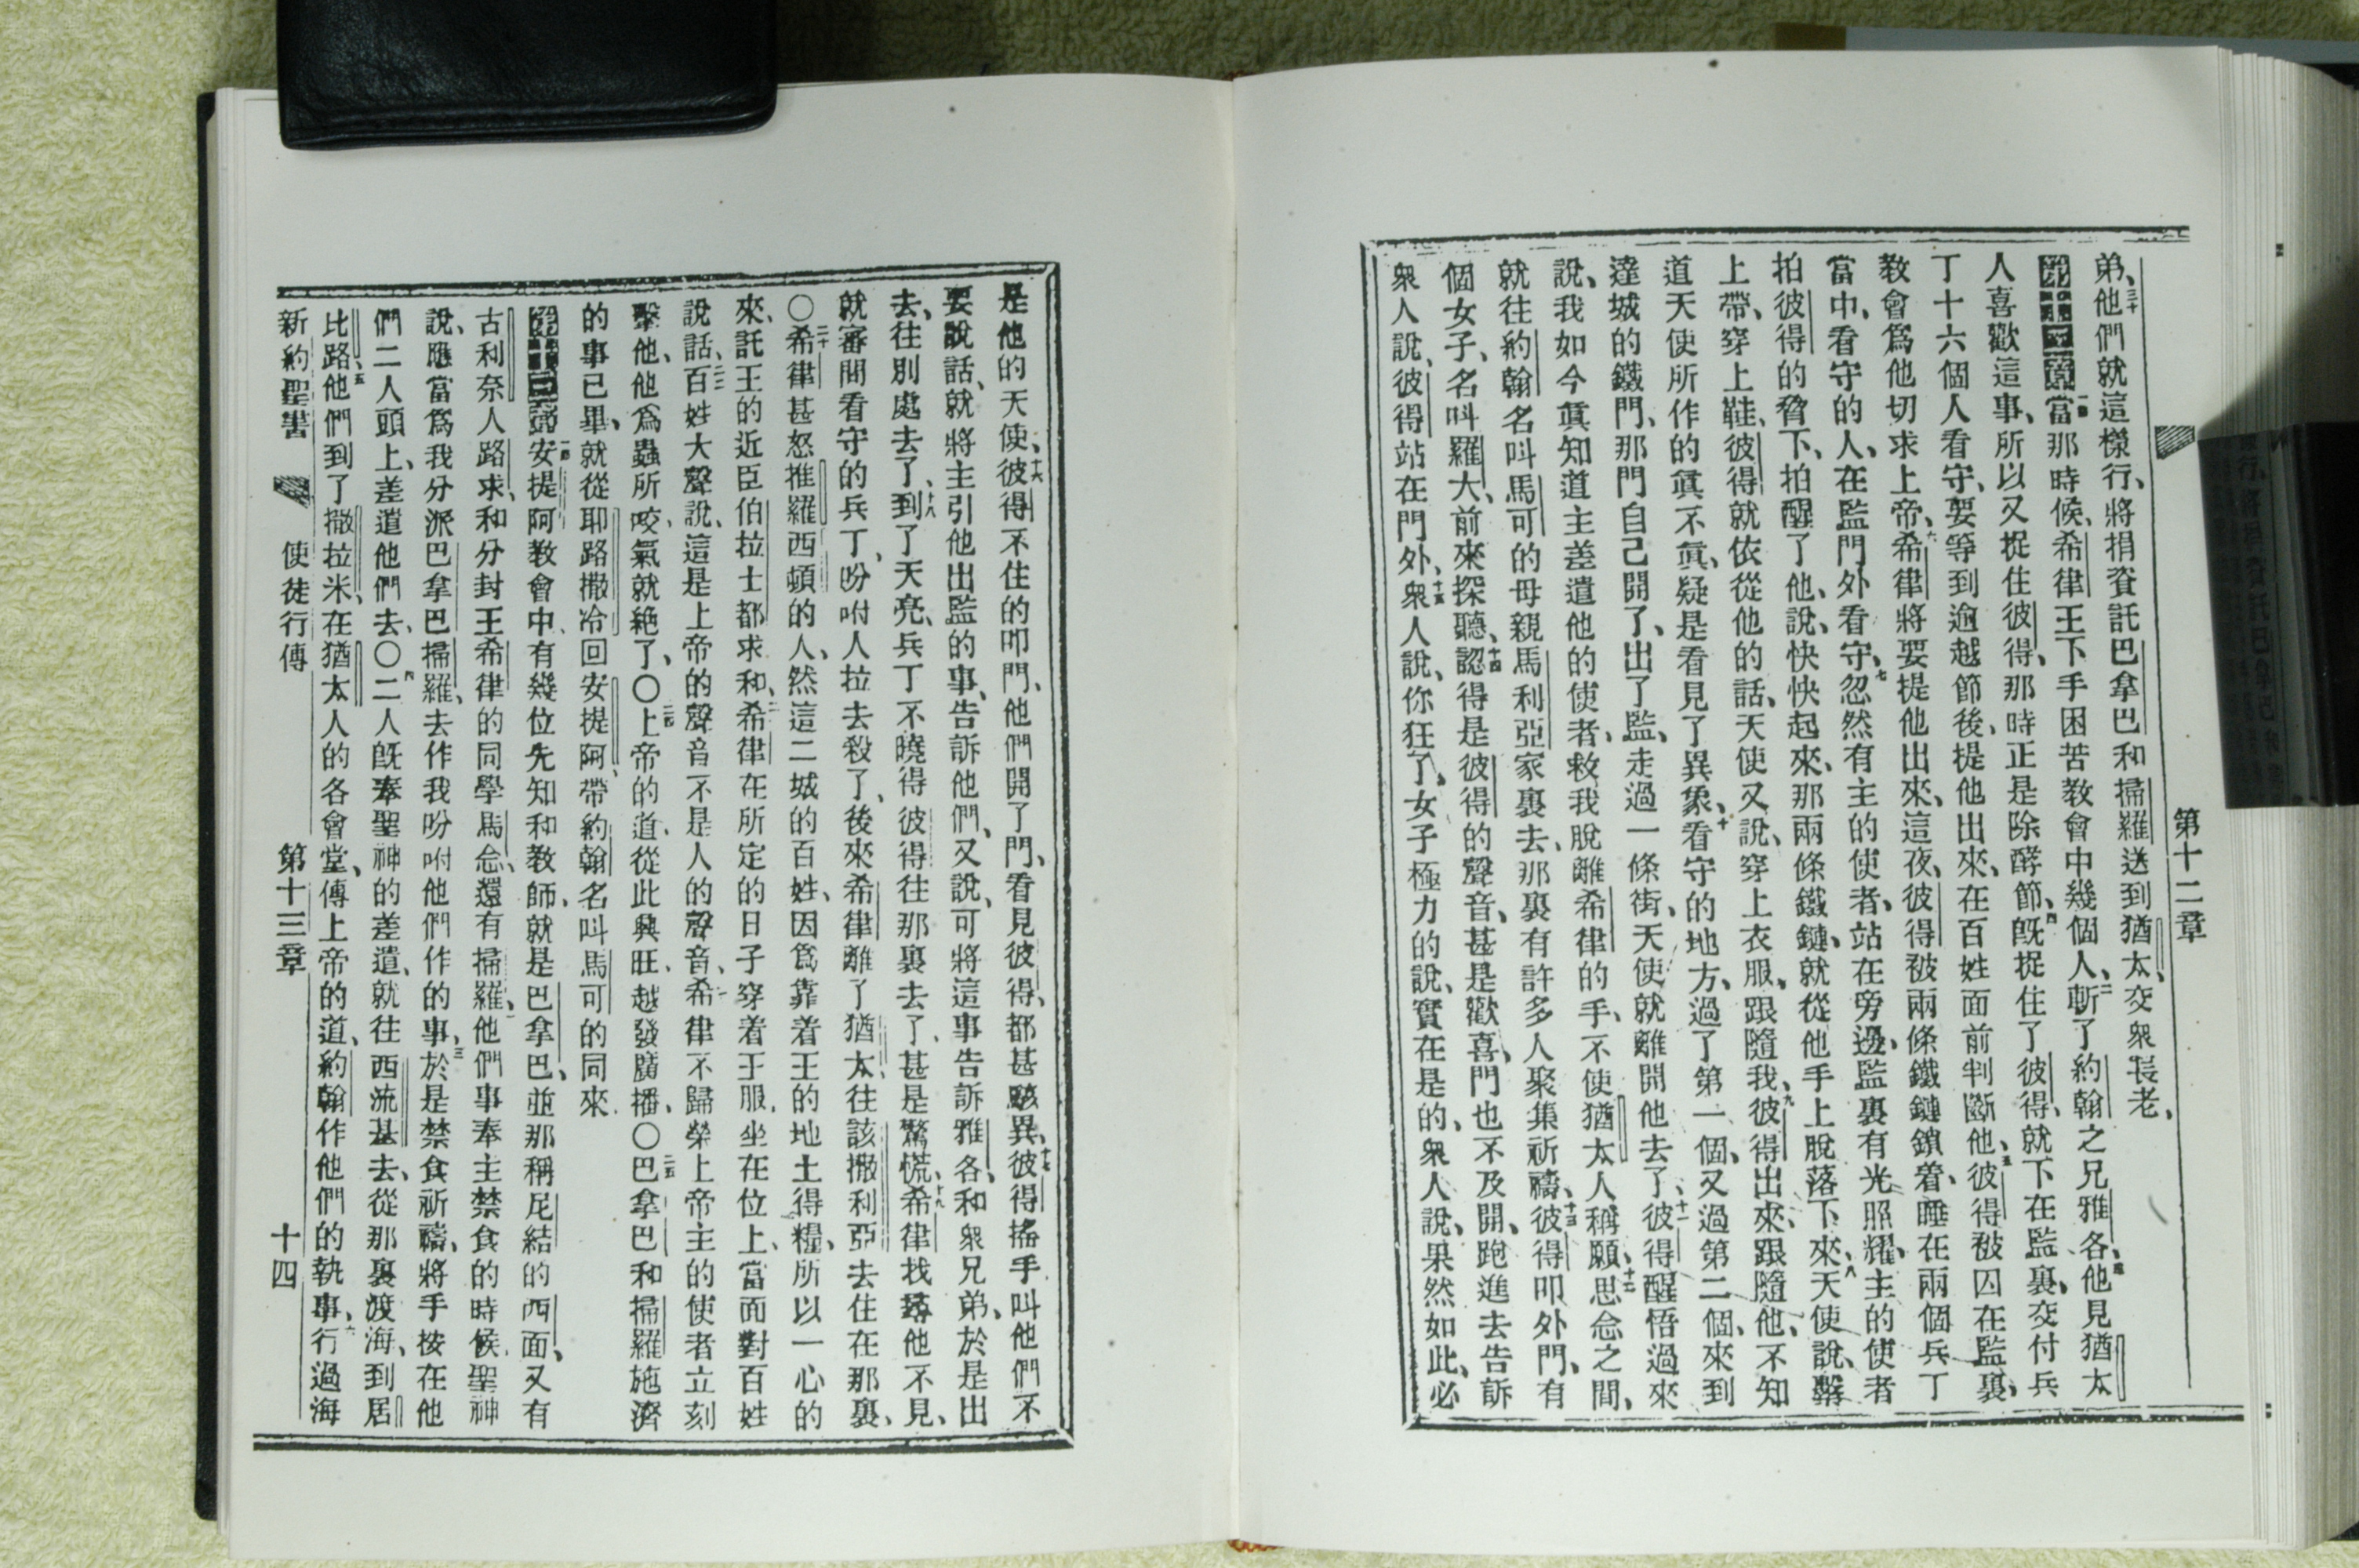 第十二章
弟、三十他們就這樣行、將捐資託巴拿巴和掃羅送到猶太、交衆長老、
第十二章一當那時候、希律王下手困苦教會中幾個人、二斬了約翰之兄雅各、三他見猶太
人喜歡這事、所以又捉住彼得、那時正是除酵節、四旣捉住了彼得、就下在監裏、交付兵
丁十六個人看守、要等到逾越節後、提他出來、在百姓面前判斷他、五彼得被囚在監裏、
教會爲他切求上帝、六希律將要提他出來、這夜、彼得被兩條鐵鏈鎖着、睡在兩個兵丁
當中、看守的人、在監門外看守、七忽然有主的使者、站在旁邊、監裏有光照耀、主的使者
拍彼得的脅下、拍醒了他、說、快快起來、那兩條鐵鏈、就從他手上脫落下來、八天使說、繫
上帶、穿上鞋、彼得就依從他的話、天使又說、穿上衣服、跟隨我、九彼得出來、跟隨他、不知
道天使所作的眞不眞、疑是看見了異象、十看守的地方、過了第一個、又過第二個、來到
達城的鐵門、那門自己開了、出了監、走過一條街、天使就離開他去了、十一彼得醒悟過來
說、我如今眞知道主差遣他的使者、救我脫離希律的手、不使猶太人稱願、十二思念之間、
就往約翰名叫馬可的母親馬利亞家裏去、那裏有許多人聚集祈禱、十三彼得叩外門、有
個女子、名叫羅大、前來探聽、十四認得是彼得的聲音、甚是歡喜、門也不及開、跑進去告訴
衆人說、彼得站在門外、十五衆人說、你狂了、女子極力的說、實在是的、衆人說、果然如此、必
是他的天使、十六彼得不住的叩門、他們開了門、看見彼得、都甚駭異、十七彼得搖手叫他們不
要說話、就將主引他出監的事、告訴他們、又說、可將這事告訴雅各、和衆兄弟、於是出
去、往別處去了、十八到了天亮、兵丁不曉得彼得往那裏去了、甚是驚慌、十九希律找尋他不見、
就審問看守的兵丁、吩咐人拉去殺了、後來希律離了猶太、往該撒利亞去住在那裏、
○二十希律甚怒推羅西頓的人、然這二城的百姓、因爲靠着王的地土得糧、所以一心的
來、託王的近臣伯拉士都求和、二一希律在所定的日子穿着王服、坐在位上、當面對百姓
說話、二二百姓大聲說、這是上帝的聲音不是人的聲音、希律不歸榮上帝主的使者立刻
擊他、他爲蟲所咬、氣就絕了、○二四上帝的道、從此興旺、越發廣播、○二五巴拿巴和掃羅施濟
的事已畢、就從耶路撒冷回安提阿、帶約翰名叫馬可的同來、
第十三章一安提阿教會中、有幾位先知和教師、就是巴拿巴、並那稱尼結的西面、又有
古利奈人路求、和分封王希律的同學馬念、還有掃羅、二他們事奉主禁食的時候、聖神
說、應當爲我分派巴拿巴掃羅、去作我吩咐他們作的事、三於是禁食祈禱、將手按在他
們二人頭上、差遣他們去、○四二人旣奉聖神的差遣、就往西流基去、從那裏渡海、到居
比路、五他們到了撒拉米、在猶太人的各會堂、傳上帝的道、約翰作他們的執事、六行過海
新約聖書 使徒行傳 第十三章 十四